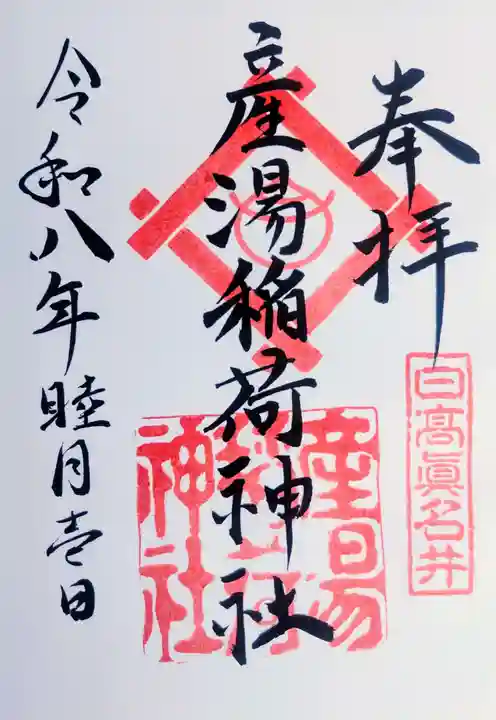 奉拝
日高眞名井
産湯稲荷神社
産湯
稲荷
神社
令和八年睦月壱日